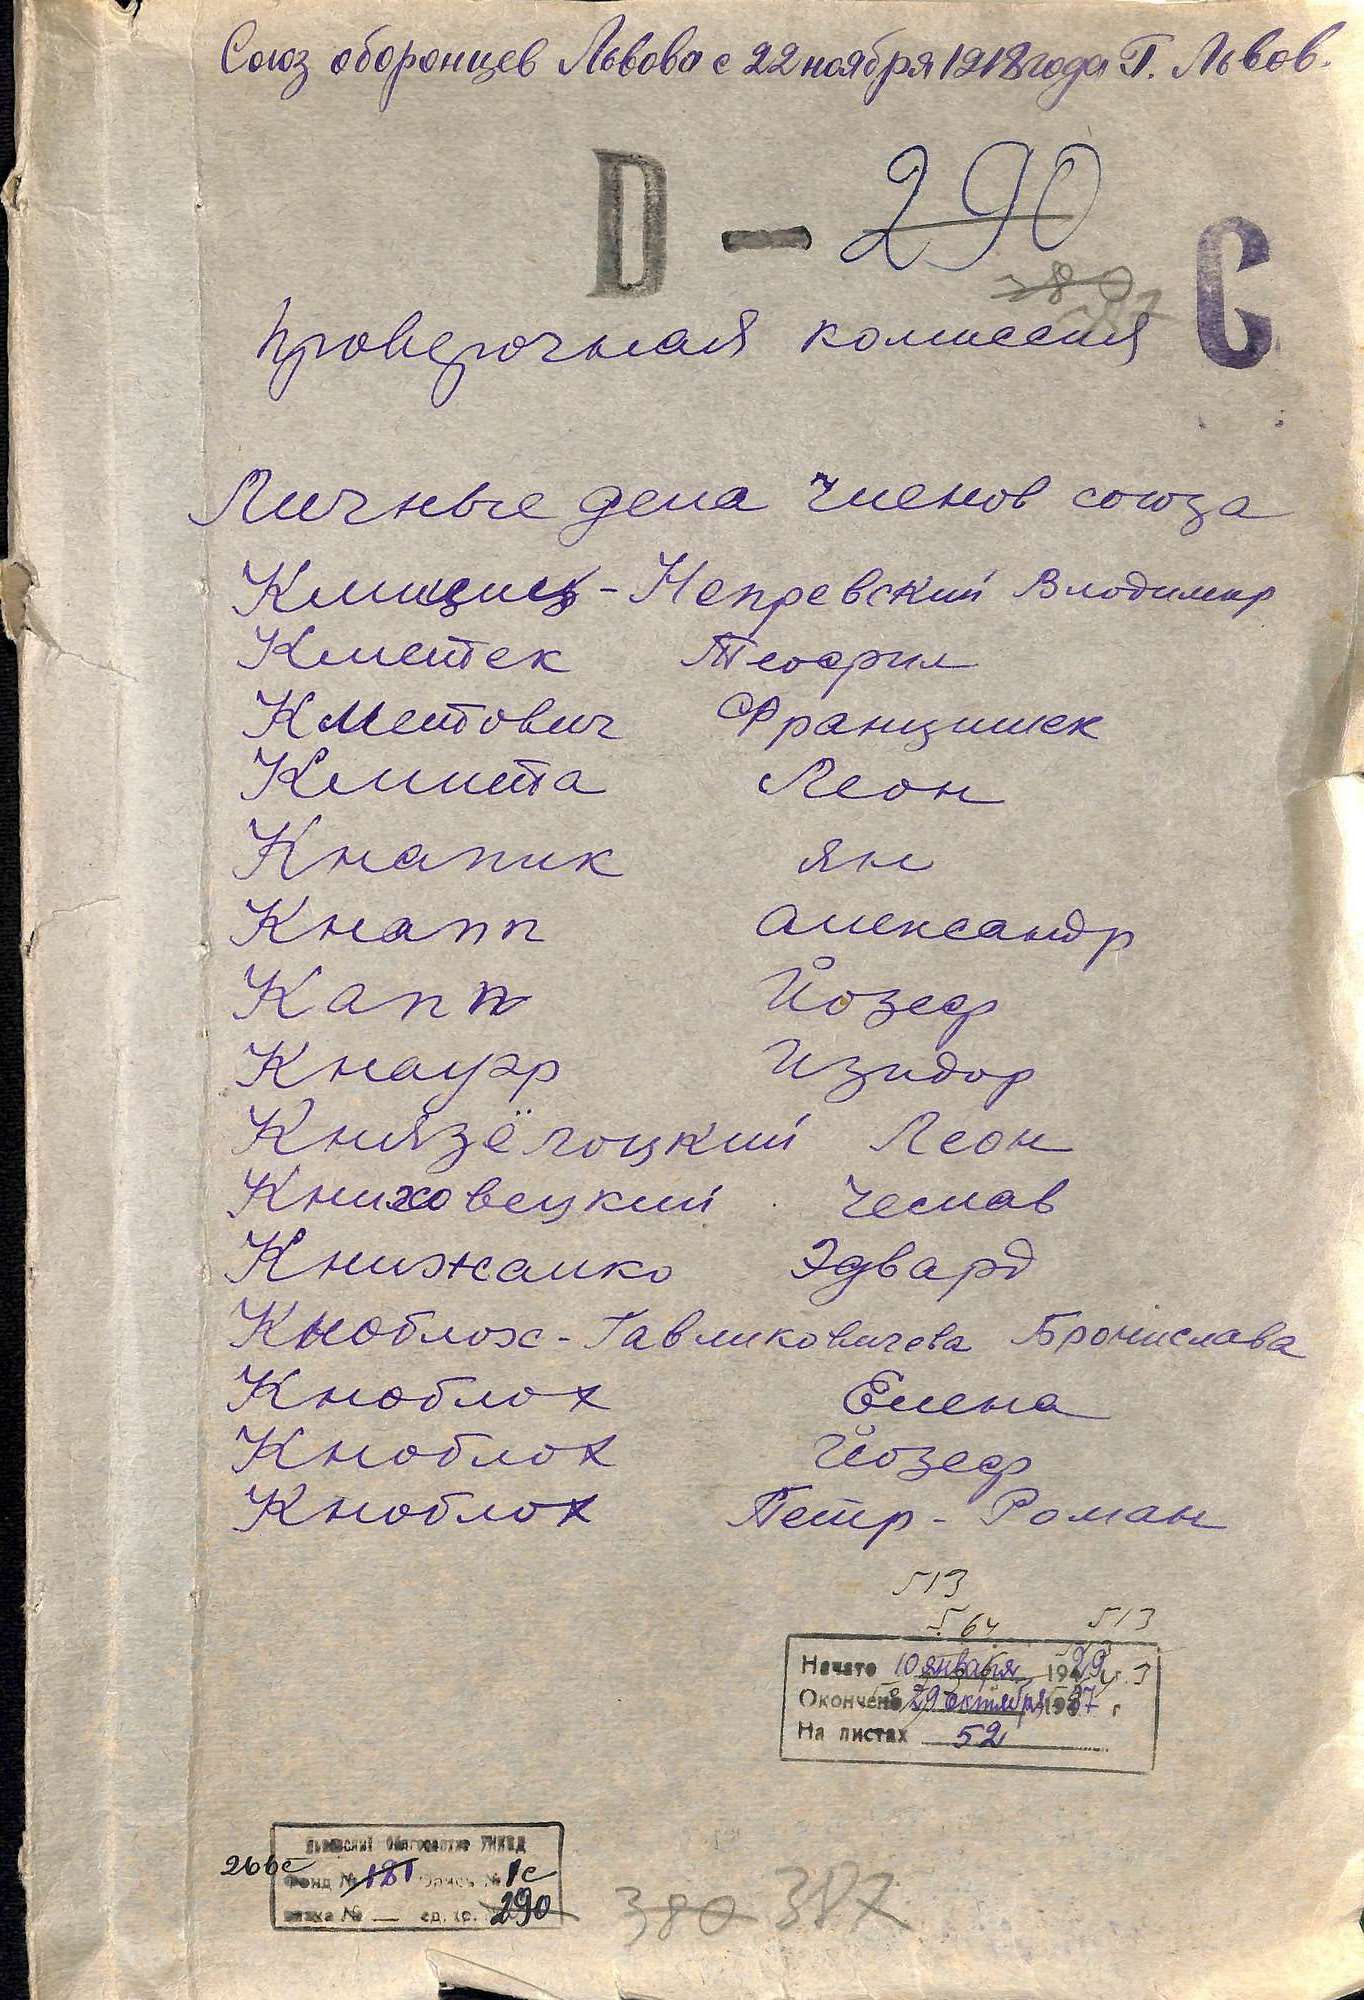 Союз оборонцев Львова с 22 ноября 1918 года г. Львов.
D — 290
380
387
C
Проверочная комиссия
Личные дела членов союза
Кмициц - Непревский Владимир
Кметек Теофил
Кметович Францишек
Кмита Леон
Кнапик Ян
Кнапп Александр
Капп Йозеф
Кнауэр Изидор
Князёлоцкий Леон
Книховецкий Чеслав
Книжалко Эдвард
Кноблох - Гавликовичева Бронислава
Кноблох Елена
Кноблох Йозеф
Кноблох Петр - Роман
513
564 513
Начато 10 января
Окончено 29 октября 1937 г
На листах 52
Львовский Облгосархив УНКВД
266с Фонд № 181 Опись № 1с
вязка № — ед. хр. 290
380 387